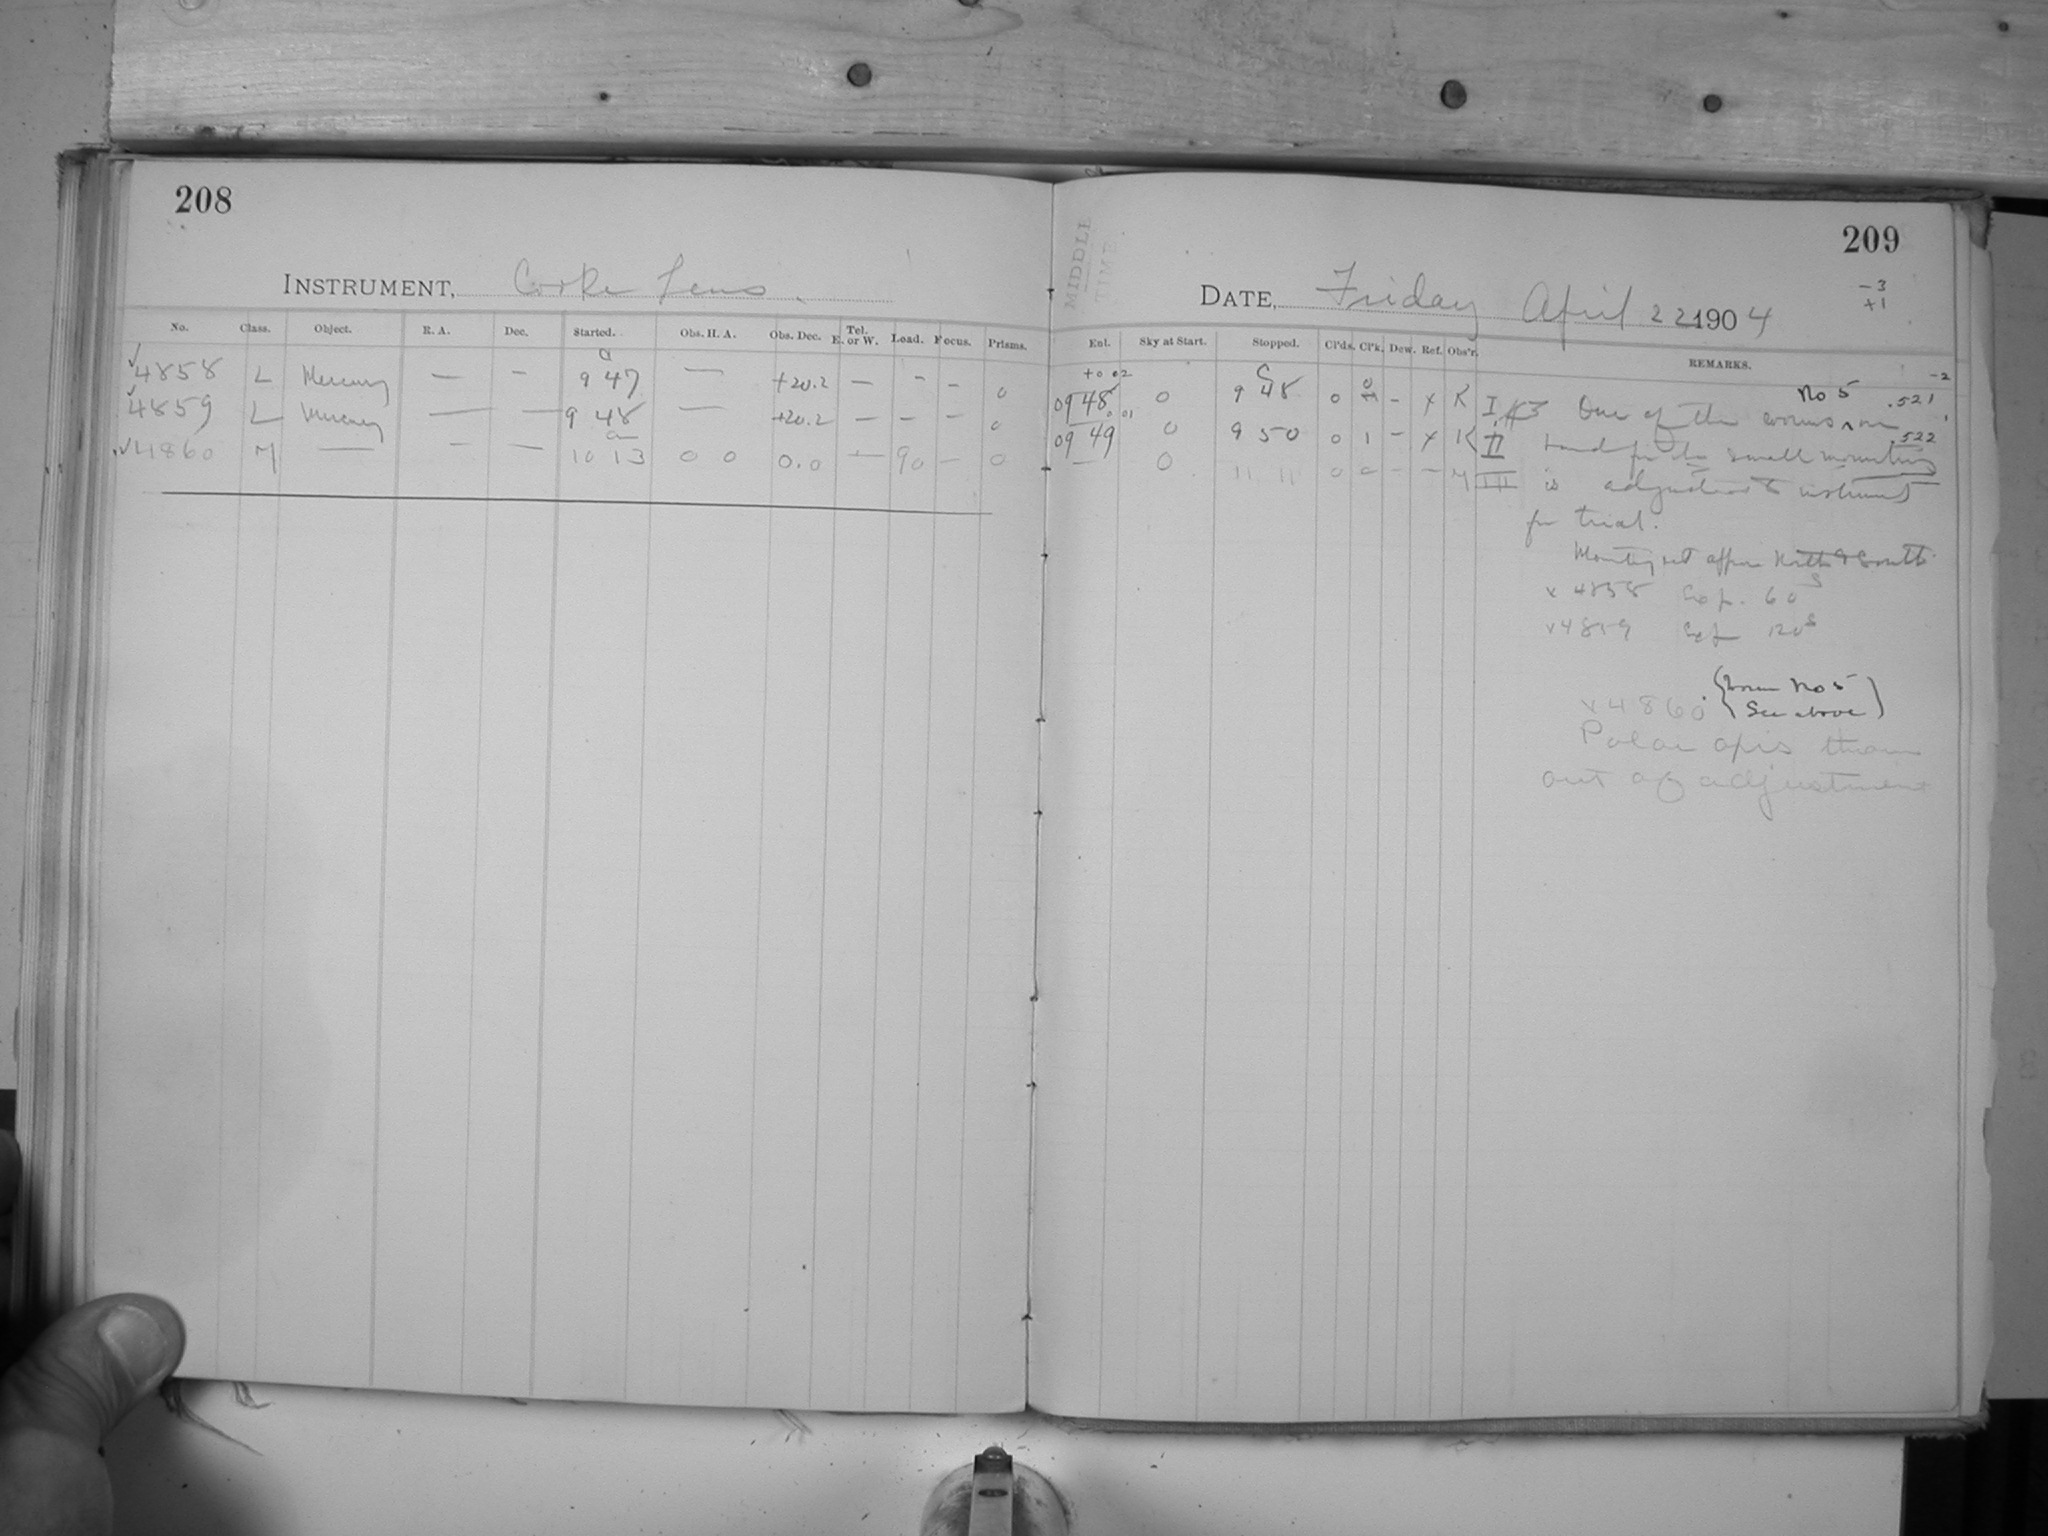 208
INSTRUMENT, Cooke Lens.
No. Class. Object. R. A. Dec. Started. Obs. H. A. Obs. Dec. Tel. E. or W. Load. Focus. Prisms.
4858 L Mercury — — 9 47 — +20.2 — - - 0
4859 L Mercury — — 9 48 — +20.2 — - - 0
4860 M — — — 10 13 0 0 0.0 — 90 — 0
MIDDLE
TIME
209
DATE, Friday April 22 1904
-3
+1
Ent. Sky at Start. Stopped. Cl'ds. Cl'k. Dew. Ref. Obs'r. REMARKS.
+0 02 -2
09 48 0 9 48 0 0 - x K I One of the worms on No 5 .521
09 49 0 9 50 0 1 - x K II hand for the small mounting .522
— 0 11 11 0 0 - - M III is adjusted to instrument
for trial.
Mounting set North & South
x 4858 Exp. 60s
x 4859 Exp 120s
x 4860 {Worm No 5
See above}
Polar axis thrown
out of adjustment